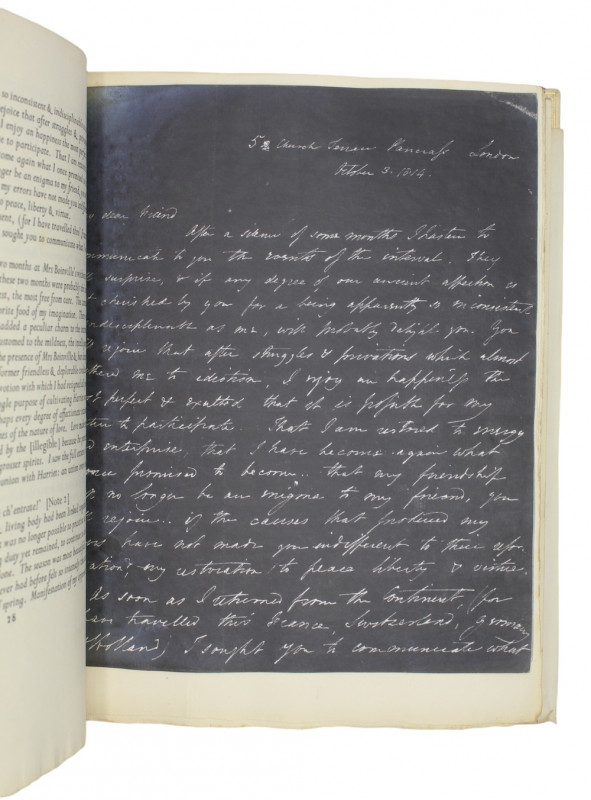 so inconsistent & indisciplinable
rejoice that after struggles & pri
I enjoy an happiness the most perf
to participate. That I am
ome again what I once promised
ger be an enigma to my friend, you
my errors have not made you indiff
to peace, liberty & virtue.
nent, (for I have travelled thro'
sought you to communicate what
two months at Mrs Boinville's
these two months were probably the
, the most free from care. The
rite food of my imagination.
added a peculiar charm to the
stomed to the mildness, the
the presence of Mrs Boinville, &
former friendless & deplorable
vation with which I had resigned
gle purpose of cultivating
haps every degree of affectionate
es of the nature of love.
ed by the [illegible] because he
grosser spirits. I saw the full
union with Harriet: an union
ch' entrate!" [Note 2]
living body had been linked
was no longer possible to
duty yet remained, to continue
one. The season was most beautiful
ever had before felt so intensely
f spring. Manifestation of my
28
5 Church Terrace Pancrass London
October 3. 1814.
My dear Friend
After a silence of some months I hasten to
communicate to you the events of the interval. They
will surprise, & if any degree of our ancient affection is
yet cherished by you for a being apparently so inconsistent
& indisciplinable as me, will probably delight you. You
will rejoice that after struggles & privations which almost
withered me to idiotism, I enjoy an happiness the
most perfect & exalted that it is possible for my
nature to participate. That I am restored to energy
and enterprise, that I have become again what
I once promised to become.. that my friendship
will no longer be an enigma to my friend, you
will rejoice.. if the causes that produced my
errors have not made you indifferent to their refor-
mation; my restoration to peace liberty & virtue.
As soon as I returned from the Continent, (for
I have travelled thro' France, Switzerland, Germany
& Holland,) I sought you to communicate what